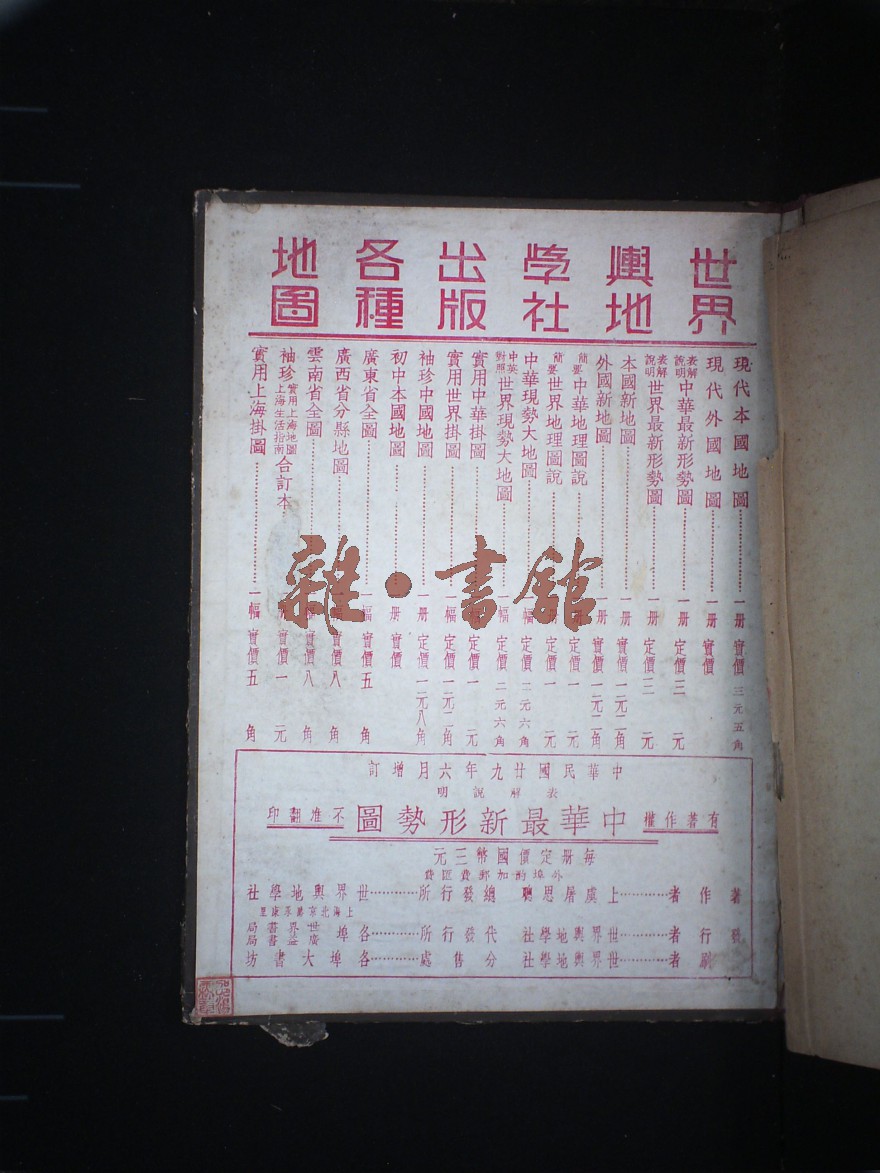 世界輿地學社出版各種地圖
現代本國地圖 一册 實價 三元五角
現代外國地圖 一册 實價
表解說明 中華最新形勢圖 一册 定價 三元
表解說明 世界最新形勢圖 一册 定價 三元
本國新地圖 一册 實價 一元二角
外國新地圖 一册 實價 一元二角
簡要 中華地理圖說 一册 定價 一元
簡要 世界地理圖說 一册 定價 一元
中華現勢大地圖 一幅 定價 二元六角
中英對照 世界現勢大地圖 一幅 定價 二元六角
實用中華掛圖 一幅 定價 一元
實用世界掛圖 一幅 定價 一元二角
袖珍中國地圖 一册 定價 一元八角
初中本國地圖 一册 實價
廣東省全圖 一幅 實價 五角
廣西省分縣地圖 實價 八角
雲南省全圖 實價 八角
袖珍 實用上海地圖 上海生活指南 合訂本 實價 一元
實用上海掛圖 一幅 實價 五角
雜·書館
中華民國廿九年六月增訂
表解說明
有著作權 中華最新形勢圖 不准翻印
每册定價國幣三元
外埠酌加郵費匯費
著作者 上虞屠思聰 總發行所 世界輿地學社
上海北京路永康里
發行者 世界輿地學社 代發行所 各埠 世界書局 廣益書局
刷者 世界輿地學社 分售處 各埠大書坊